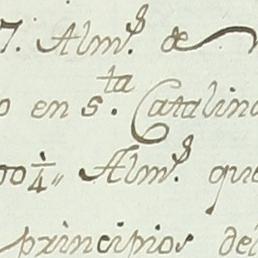 7. Alm.s de
en S.ta Catalina
00 1/4 " Alm.s que
principios del